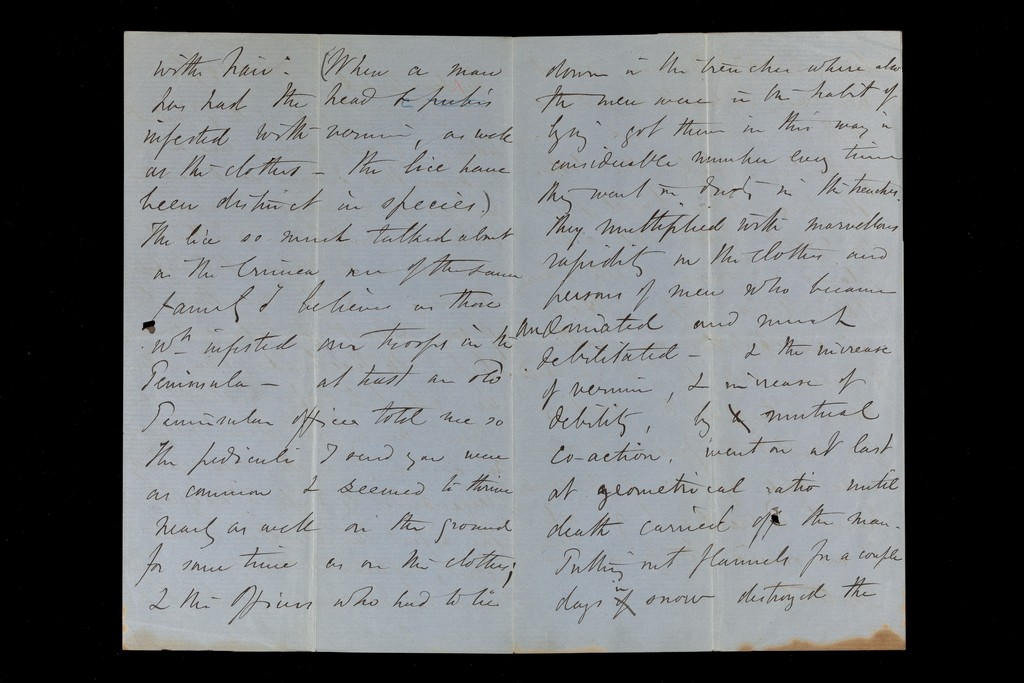 with hair. (When a man
has had the head & pubis
infested with vermin, as well
as the clothes – the lice have
been distinct in species.)
The lice so much talked about
in the Crimea, are of the same
family I believe as those
wh infested our troops in the
Peninsula – at least an old
Peninsular officer told me so
The pediculi I send you were
as common & seemed to thrive
nearly as well on the ground
for some time as on the clothes;
& the Officers who had to lie
down in the trenches where also
the men were in the habit of
lying got them in this way in
considerable number every time
they went on duty in the trenches.
They multiplied with marvellous
rapidity in the clothes and
persons of men who became
and much
debilitated – & the increase
of vermin, & increase of
debility, by mutual
co-action, went on at last
at geometrical ratio until
death carried off the man.
Putting out flannels for a couple
days in snow destroyed the